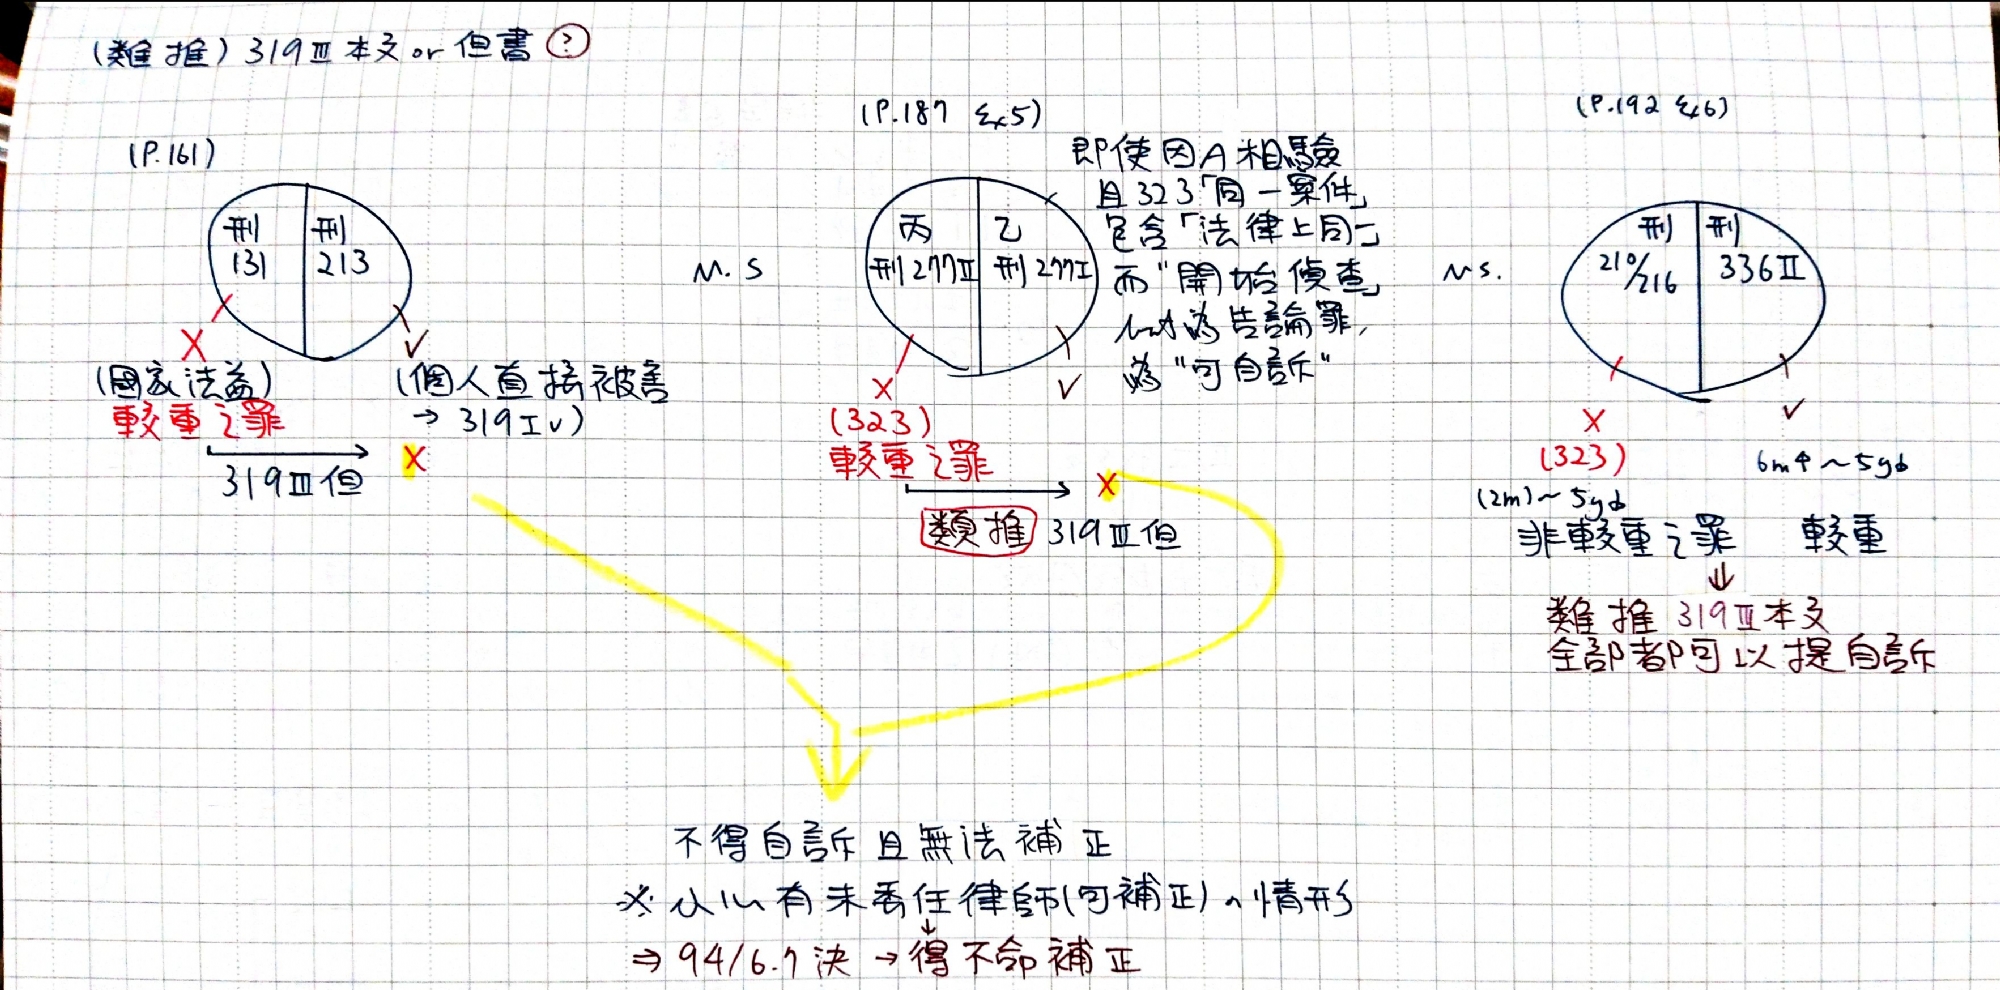 (類推) 319Ⅲ本文 or 但書 ?
(P.161)
刑 131
刑 213
X
✓
(國家法益)
較重之罪
(個人直接被害
→ 319Ⅰ✓)
X
319Ⅲ但
V.S
(P.187 Ex5)
丙
刑277Ⅱ
乙
刑277Ⅰ
即使因A相驗
且323「同一案件」
包含「法律上同一」
而"開始偵查」
為告訴論罪,
為"可自訴"
X
✓
(323)
較重之罪
X
類推 319Ⅲ但
VS.
(P.192 Ex6)
刑
210/216
刑
336Ⅱ
X
✓
(323)
6m↑~5y↓
(2m)~5y↓
非較重之罪 較重
⇓
類推 319Ⅲ本文
全部都可以提自訴
不得自訴且無法補正
※ 有未委任律師(可補正)の情形
⇒ 94/6.7決 → 得不命補正